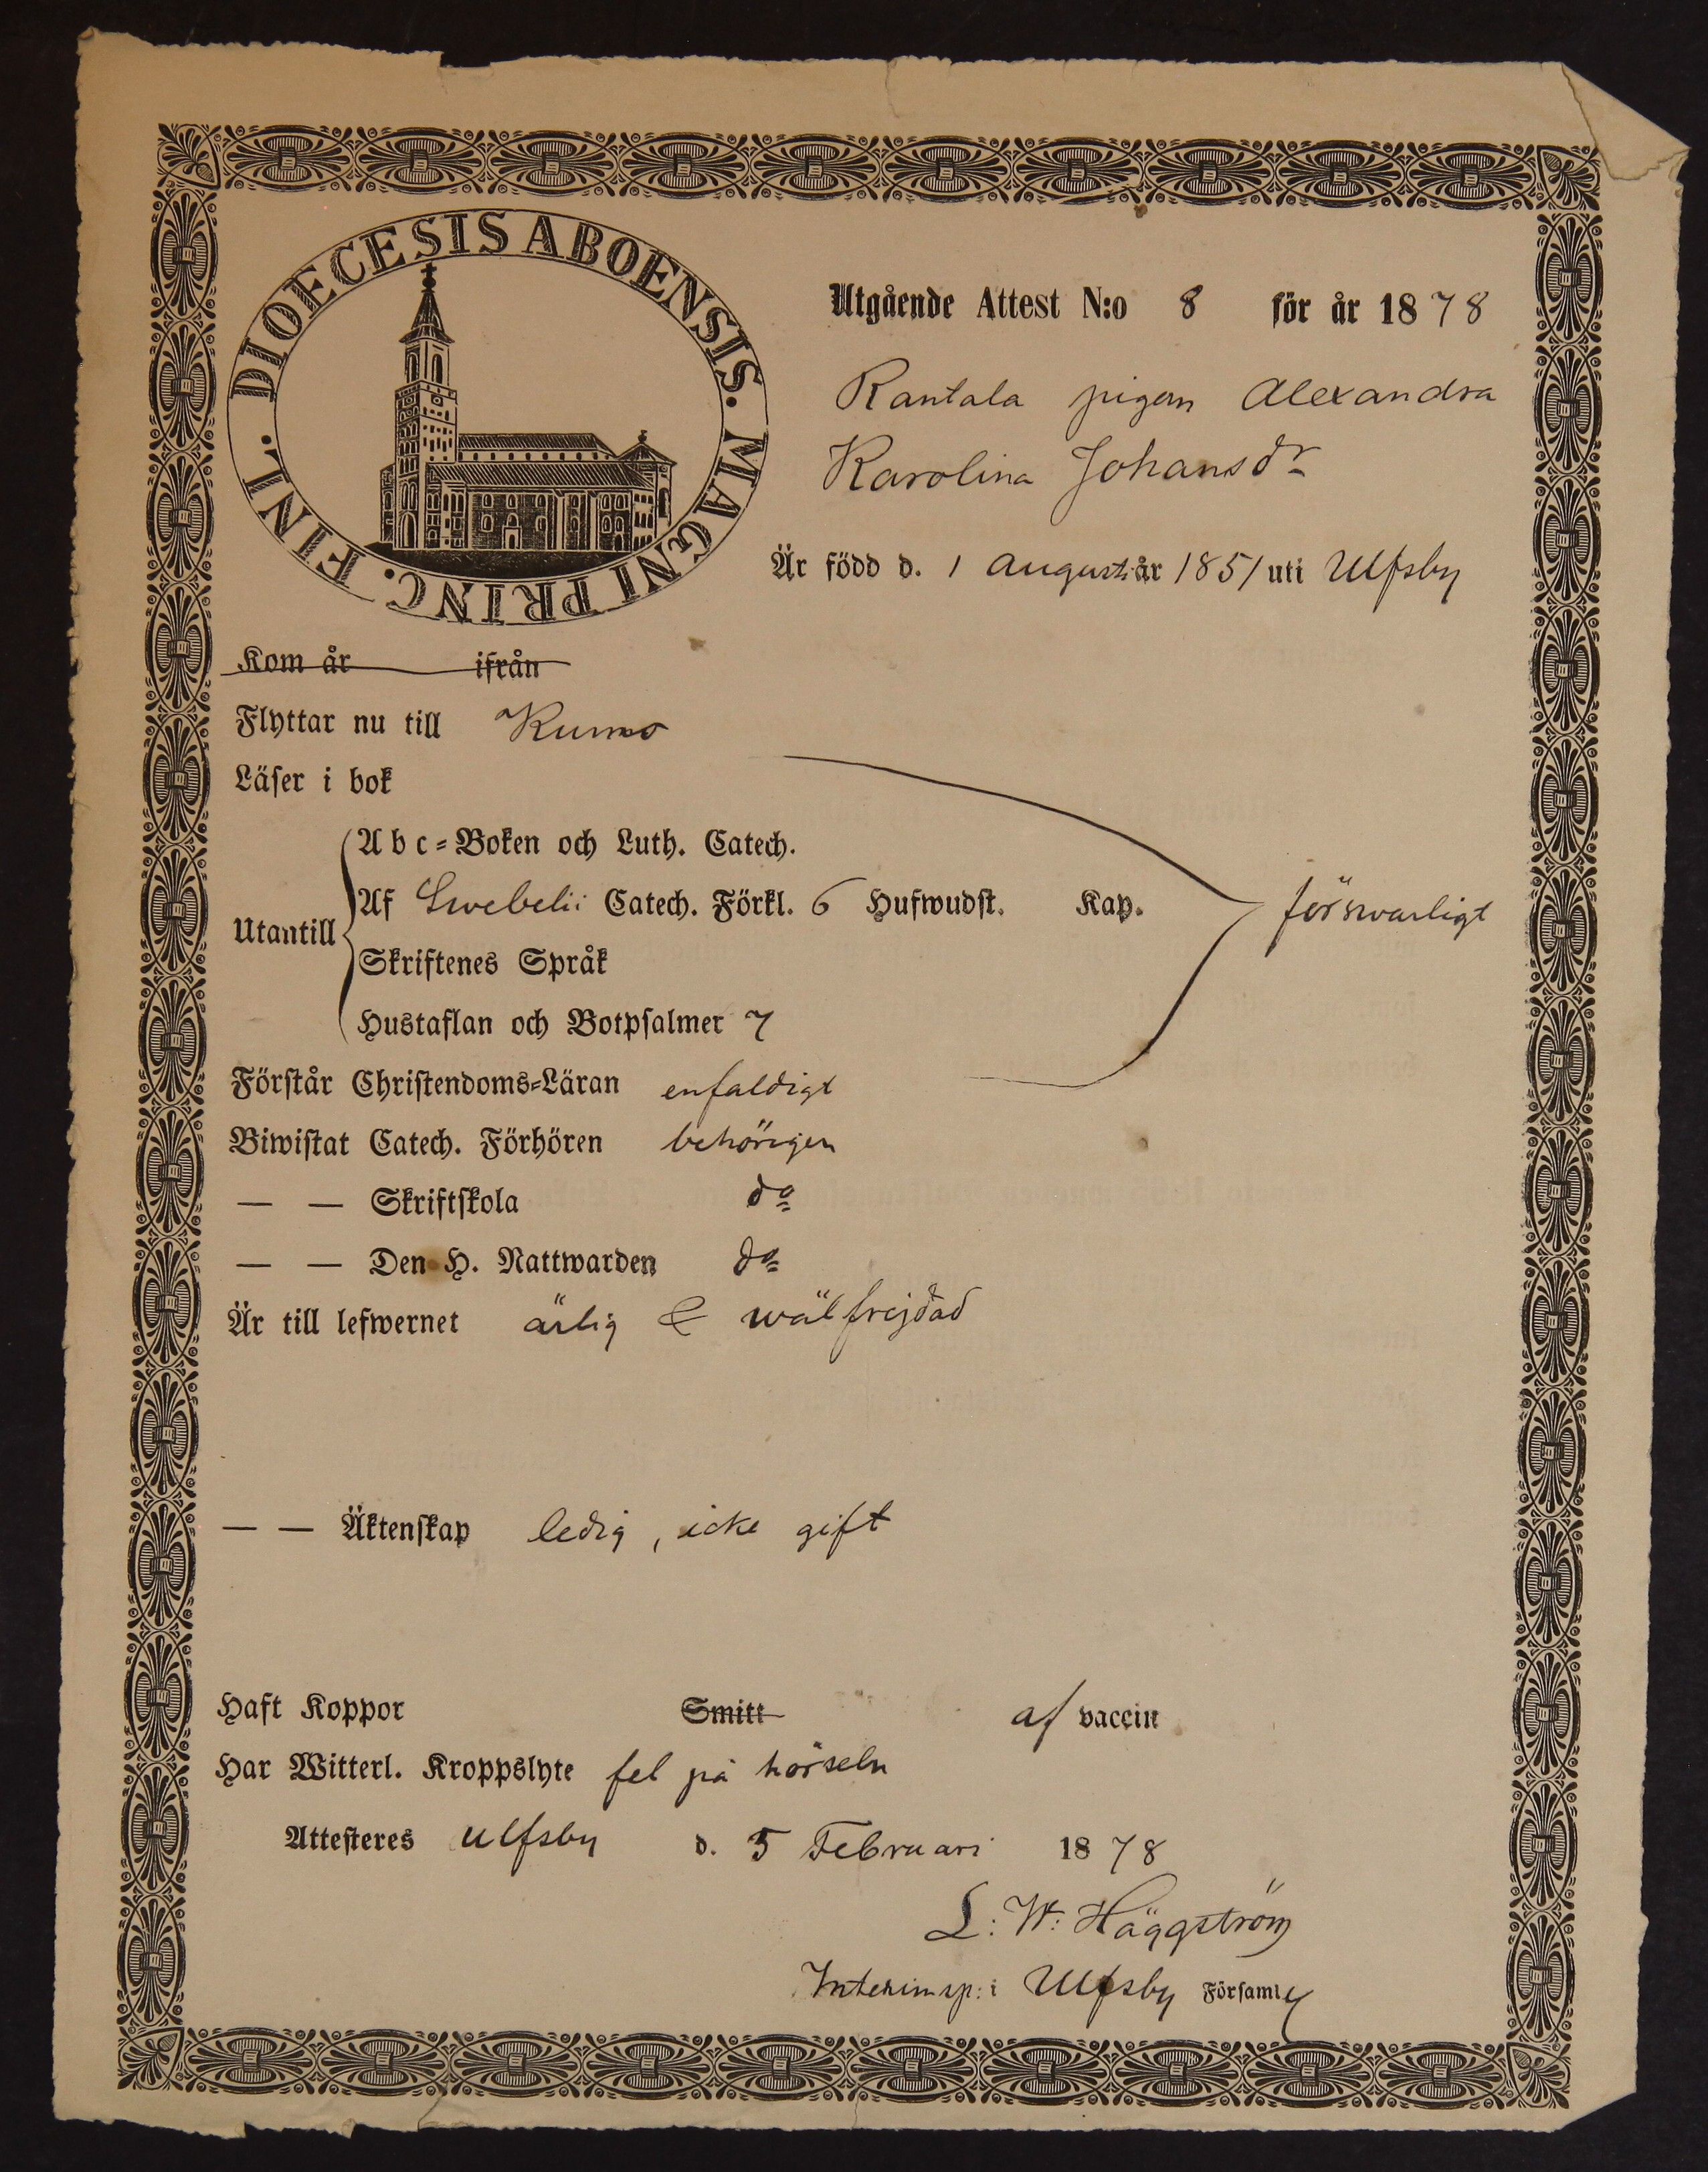 DIOECESIS ABOENSIS. MAGNI PRINC. FINL.
Utgående Attest N:o 8 för år 1878
Rantala pigan Alexandra
Karolina Johansdr
Är född d. 1 Augusti år 1851 uti Ulfsby
Kom år ifrån
Flyttar nu till Kumo
Läser i bok
Abc-Boken och Luth. Catech.
Utantill
Af Swebelii Catech. Förkl. 6 Hufwudst. Kap. förswarligt
Skriftenes Språk
Hustaflan och Botpsalmer 7
Förstår Christendoms-Läran enfaldigt
Biwistat Catech. Förhören behörigen
— — Skriftskola do
— — Den H. Nattwarden do
Är till lefwernet ärlig & wälfrejdad
— — Äktenskap ledig, icke gift
Haft Koppor Smitt af vaccin
Har Witterl. Kroppslyte fel på hörseln
Attesteres Ulfsby d. 5 Februari 1878
L: W: Häggström
Interimsp: i Ulfsby Församlg